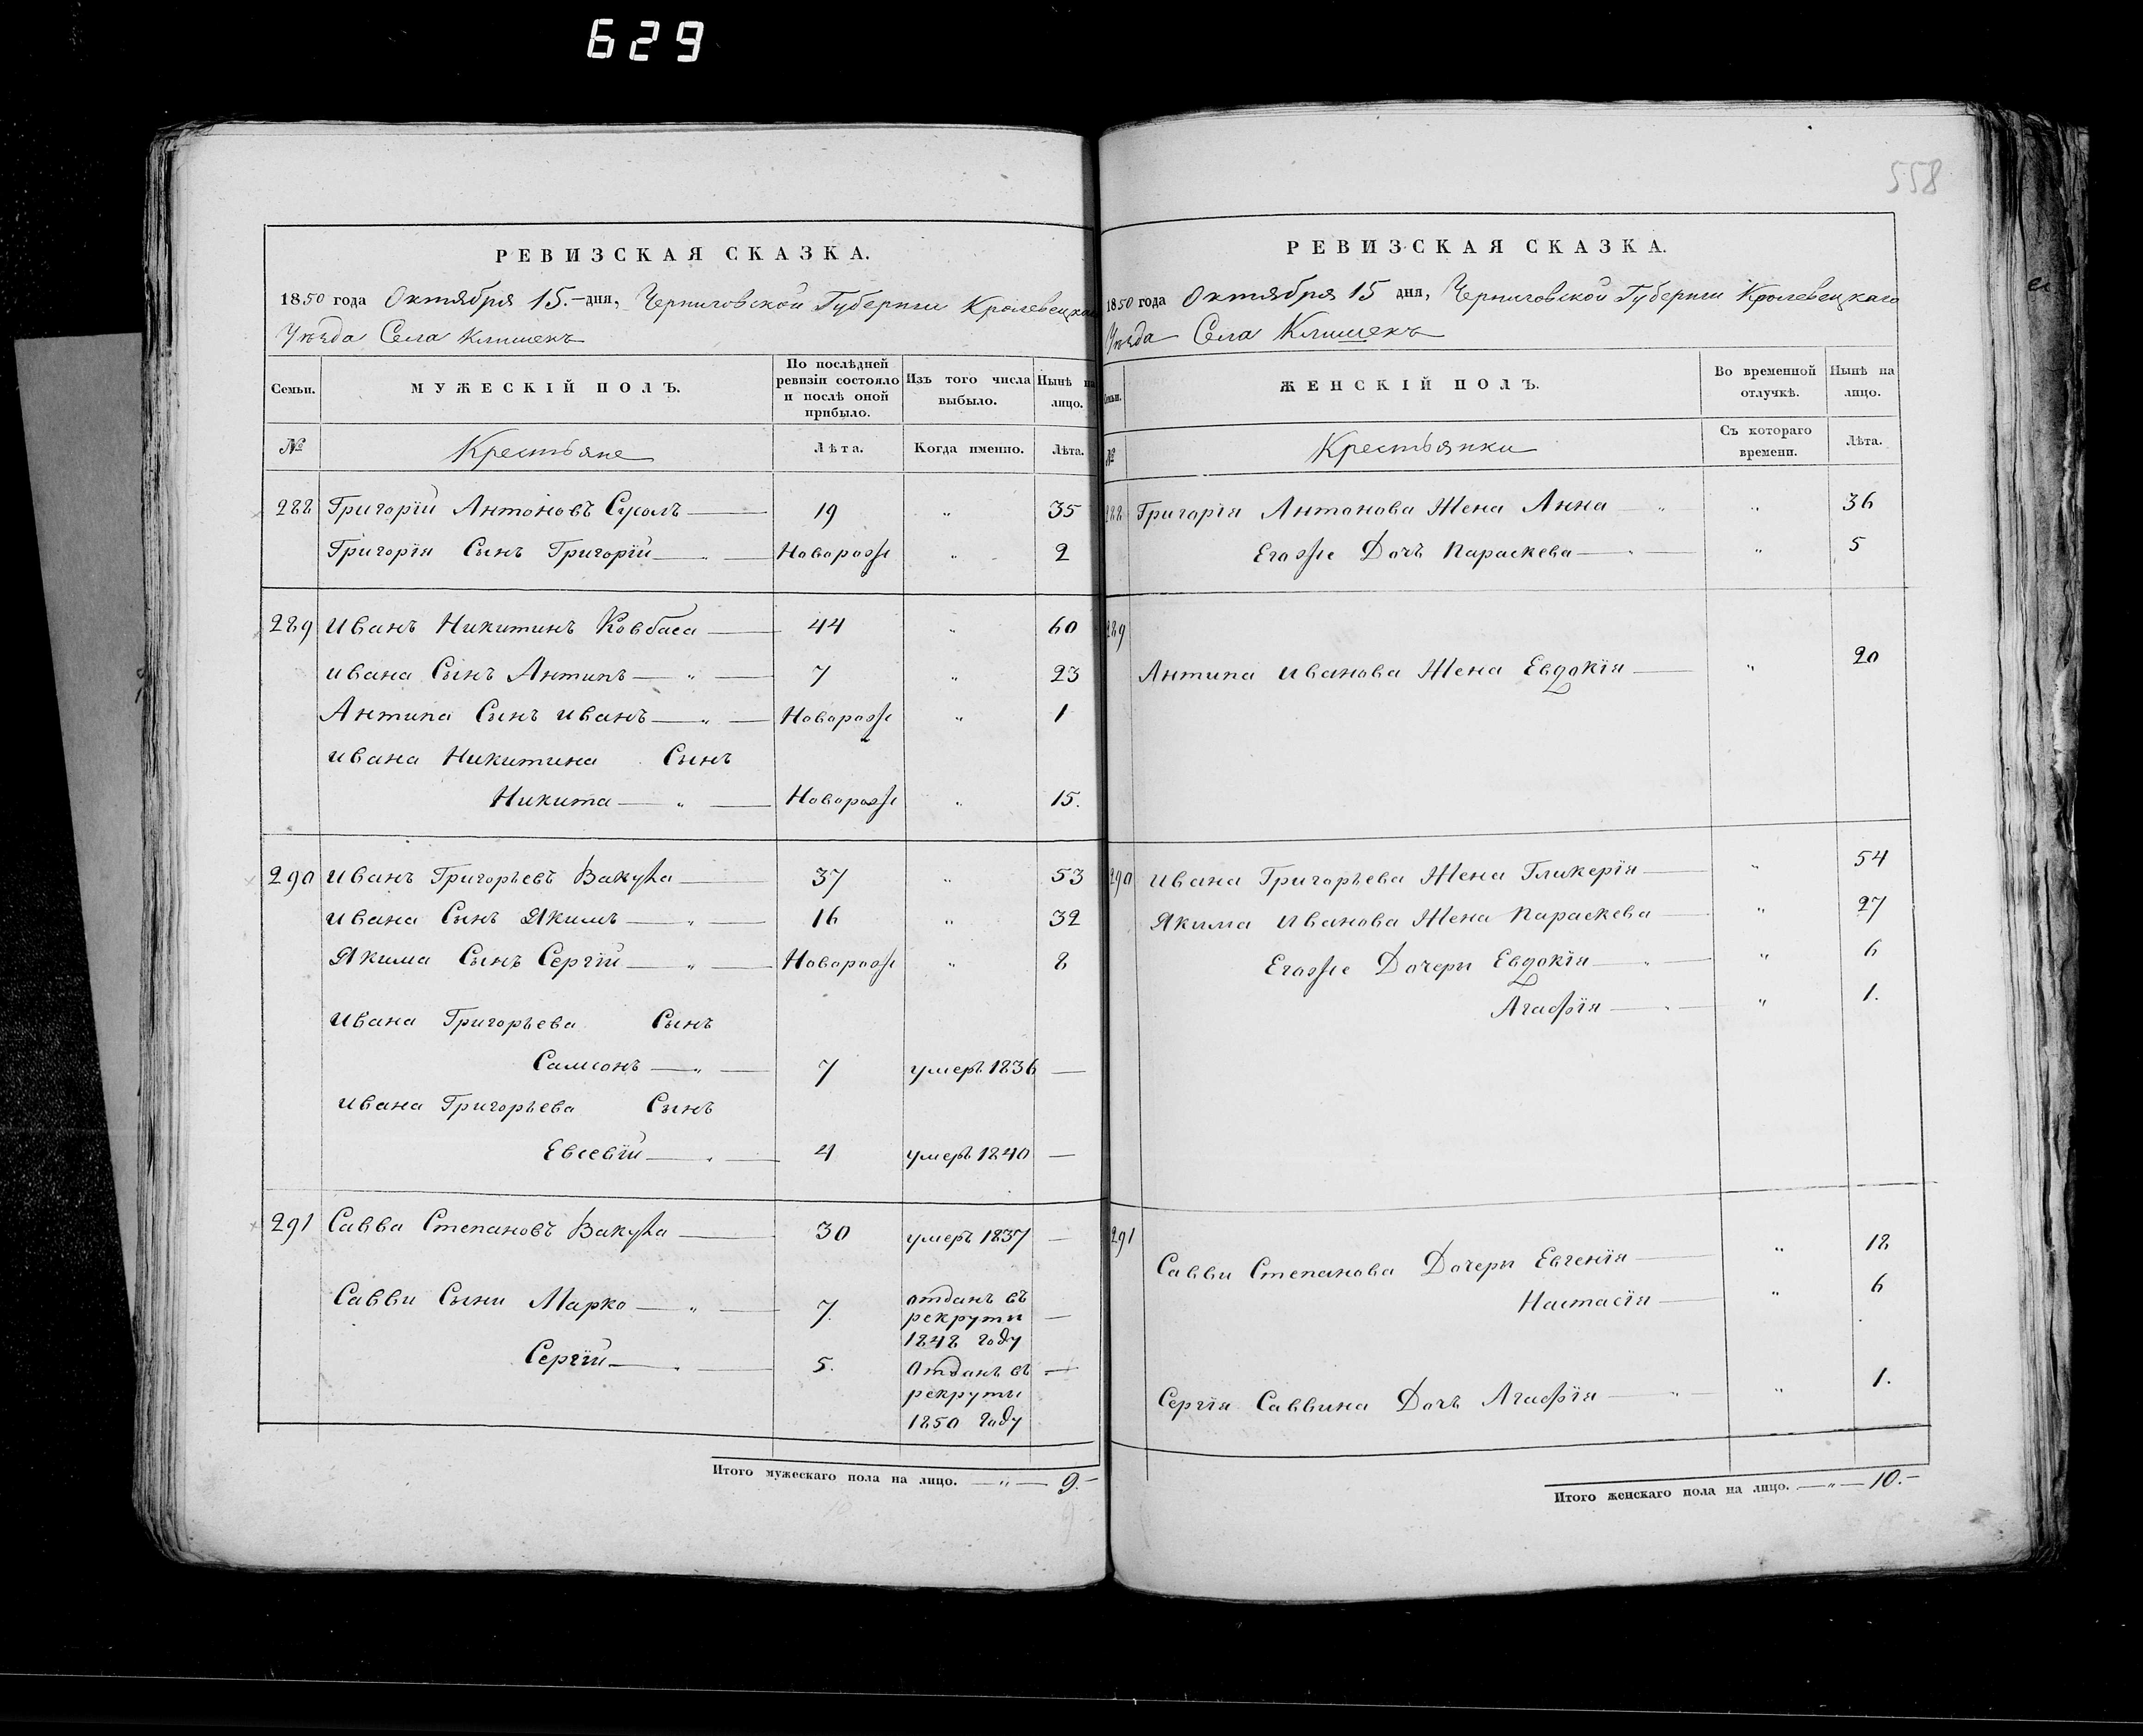 629
558
РЕВИЗСКАЯ СКАЗКА.
1850 года Октября 15.-дня, Черниговской Губернии Кролевецкаго
Уѣзда Села Клишекъ
Семьи. МУЖЕСКІЙ ПОЛЪ. По послѣдней ревизіи состояло и послѣ оной прибыло. Изъ того числа выбыло. Нынѣ на лицо.
№ Крестьяне Лѣта. Когда именно. Лѣта.
288 Григорій Антоновъ Сусолъ — 19 " 35
Григорія Сынъ Григорій — " — Новорожде " 2
289 Иванъ Никитинъ Ковбаса — 44 " 60
Ивана Сынъ Антипъ — " — 7 " 23
Антипа Сынъ Иванъ — " — Новорожде " 1
Ивана Никитина Сынъ
Никита — " — Новорожде " 15.
290 Иванъ Григорьевъ Вакула — 37 " 53
Ивана Сынъ Якимъ — " — 16 " 32
Якима Сынъ Сергій — " — Новорожде " 8
Ивана Григорьева Сынъ
Самсонъ — " — 7 умеръ 1836 —
Ивана Григорьева Сынъ
Евсевій — " — 4 умеръ 1840 —
291 Савва Степановъ Вакула — 30 умеръ 1837 —
Савви Сыни Марко — " — 7. отданъ въ рекруты 1848 году —
Сергій — " — 5. Отданъ въ рекруты 1850 году —
Итого мужескаго пола на лицо. — " — 9.-
РЕВИЗСКАЯ СКАЗКА.
1850 года Октября 15 дня, Черниговской Губерніи Кролевецкаго
Уѣзда Села Клишекъ
Семьи. ЖЕНСКІЙ ПОЛЪ. Во временной отлучкѣ. Нынѣ на лицо.
№ Крестьянки Съ котораго времени. Лѣта.
288 Григорія Антонова Жена Анна — " " 36
Егожде Дочь Параскева — " — " 5
289
Антипа Иванова Жена Евдокія — " 20
290 Ивана Григорьева Жена Гликерія — " 54
Якима Иванова Жена Параскева — " 27
Егожде Дочери Евдокія — " — " 6
Агафія — " — " 1.
291
Савви Степанова Дочери Евгенія — " 18
Настасія — " 6
Сергія Саввина Дочь Агафія — " " 1.
Итого женскаго пола на лицо. — " — 10.-